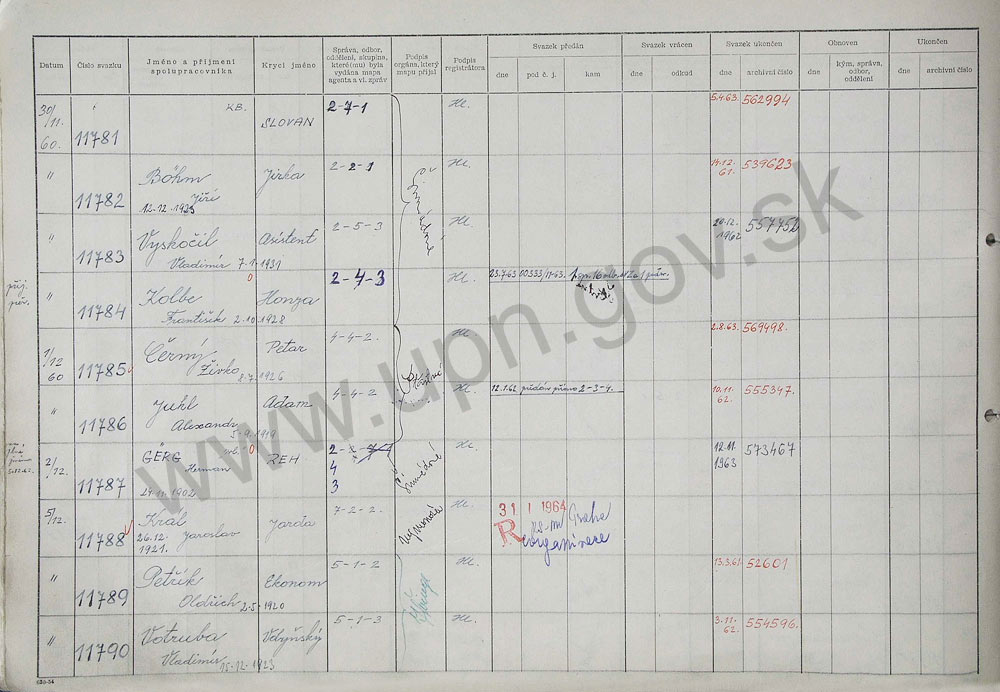 Datum
Číslo svazku
Jméno a příjmení
spolupracovníka
Krycí jméno
Správa, odbor,
oddělení, skupina,
které(mu) byla
vydána mapa
agenta a vl. zpráv
Podpis
orgána, který
mapu přijal
Podpis
registrátora
Svazek předán
dne
pod č. j.
kam
Svazek vrácen
dne
odkud
Svazek ukončen
dne
archivní číslo
Obnoven
dne
kým, správa,
odbor,
oddělení
Ukončen
dne
archivní číslo
30/11. 60.
11781
KB.
SLOVAN
2-7-1
Hl.
5.4.63. 562994
"
11782
Böhm
Jiří
12.12.1923
Jirka
2-2-1
Hl.
14.12. 61. 539623
"
11783
Vyskočil
Vladimír 7.1.1931
Asistent
2-5-3
Hl.
20.12. 1962 557752
"
11784
Kolbe
František 2.10.1928
Honza
2-4-3
Hl.
23.7.63 00333/11-63.
1/12 60
11785
Černý
Živko 8.7.1926
Petar
4-4-2.
Hl.
2.8.63. 569498.
"
11786
Juhl
Alexandr
5.9.1919
Adam
4-4-2
Hl.
12.1.62 předán přímo 2-3-4.
10.11. 62. 555347.
2/12.
11787
GÉRG
Herman
24.11.1902
ŘEH
2-
4
3
Hl.
12.11. 1963 573467
5/12.
11788
Král
26.12. Jaroslav
1921.
Jarda
7-2-2.
Hl.
31 1 1964
KS-MV Praha
Reorganizace
"
11789
Petřík
Oldřich 2.5.1920
Ekonom
5-1-2
Hl.
13.3.61 52601
"
11790
Votruba
Vladimír 15.12.1923
Volyňský
5-1-3
Hl.
3.11. 62. 554596.
www.upn.gov.sk